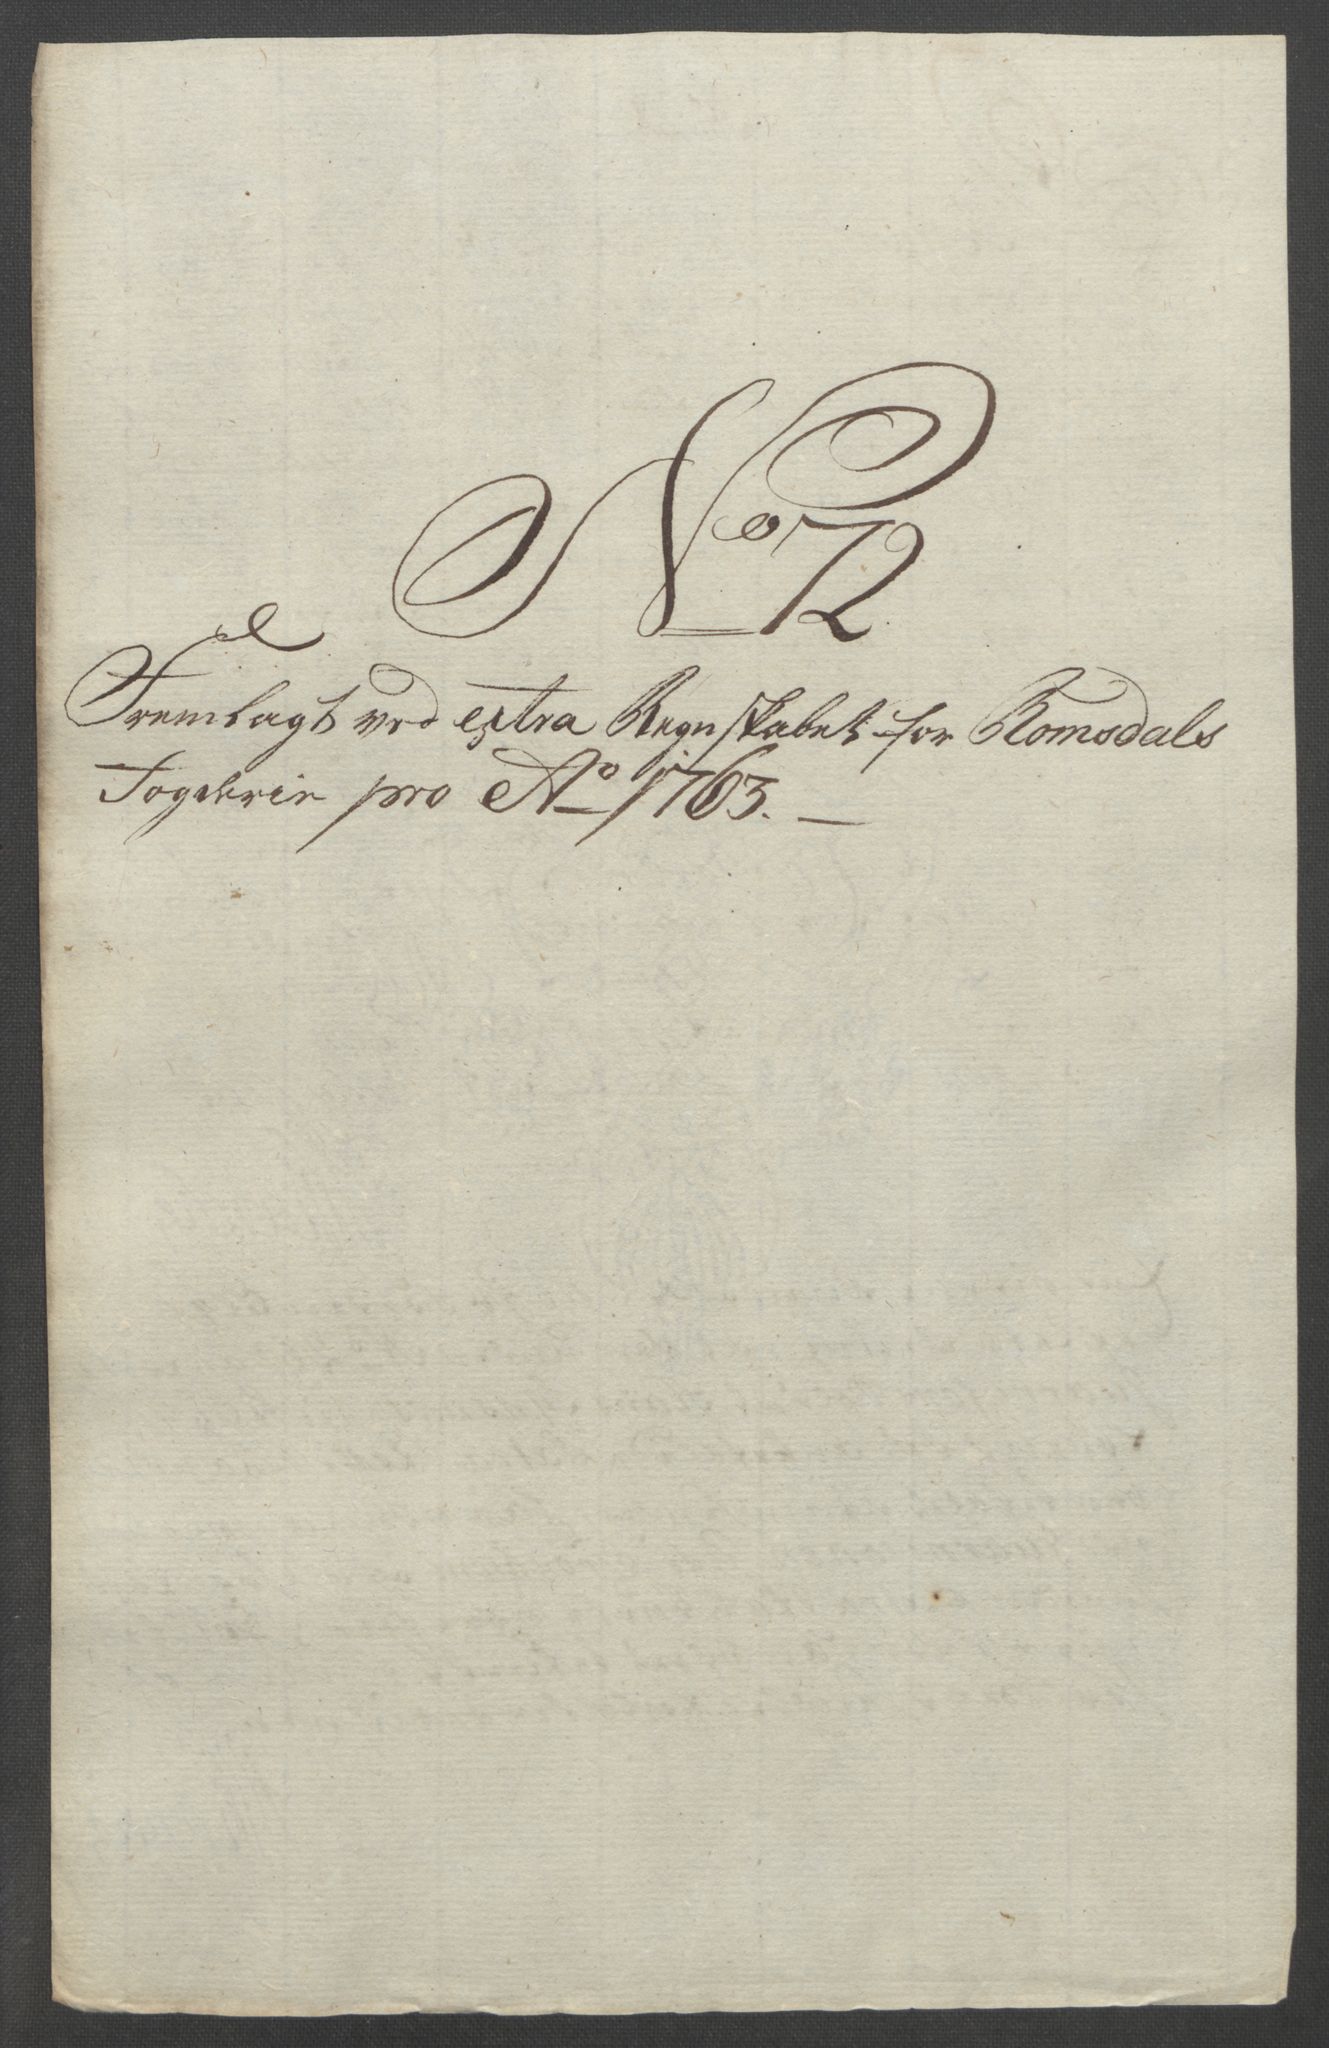 No 72
Fremlagt ved extra Regnskabet for Romsdals
Fogderie pro Ao 1763.